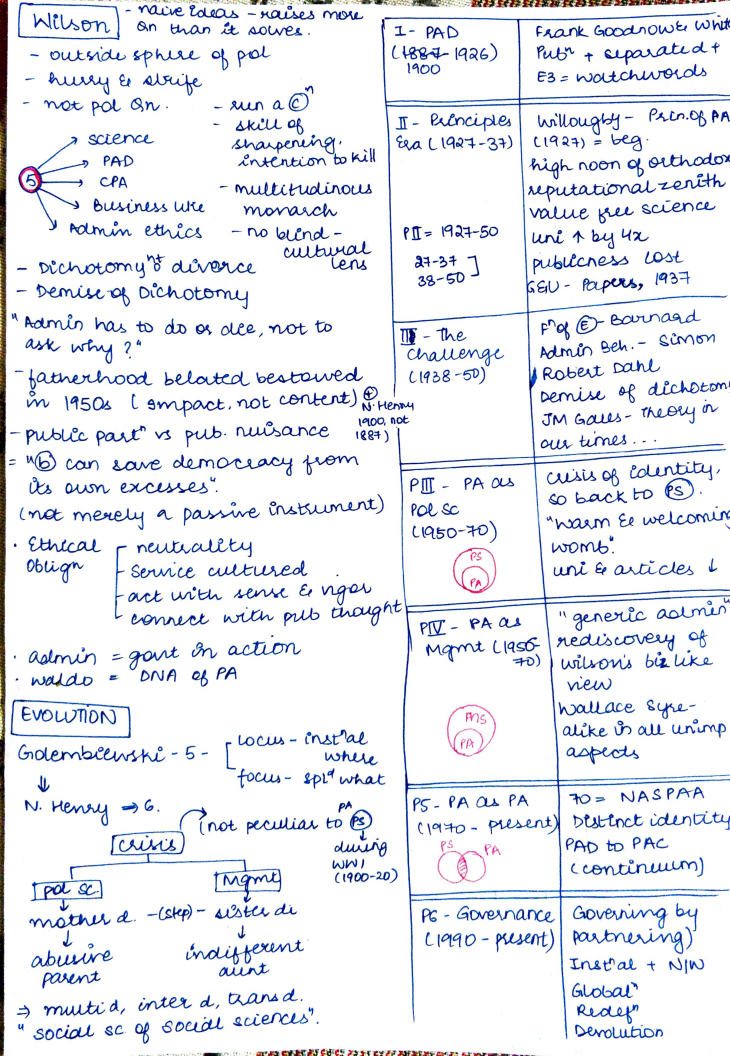 Wilson
- naive ideas - raises more
Qn than it solves.
- outside sphere of pol
- hurry & strife
- not pol Qn.
- run a Cⁿ
- skill of
sharpening,
intention to kill
- multitudinous
monarch
- no blind -
cultural
lens
5
science
PAD
CPA
Business like
Admin ethics
- Dichotomy nt divorce
- Demise of Dichotomy
"Admin has to do or die, not to
ask why?"
- fatherhood belated bestowed
in 1950s (impact, not content) +
N. Henry
1900, not
1887)
- public partⁿ vs pub. nuisance
= "b can save democracy from
its own excesses".
(not merely a passive instrument)
· Ethical
Oblign
neutrality
service cultured
act with sense & vigor
connect with pub thought
· admin = govt in action
· waldo = DNA of PA
EVOLUTION
Golembiewski - 5 -
Locus - inst'al
where
focus - splᵈ what
N. Henry ⇒ 6.
(not peculiar to PS
PA
during
WWI
(1900-20)
crisis
pol sc.
Mgmt
mother d. -(step)- sister di
abusive
parent
indifferent
aunt
⇒ multi d, inter d, trans d.
"social sc of social sciences".
I - PAD
(1887-1926)
1900
Frank Goodnow & Whit
Pubⁿ + separated +
E3 = watchwords
II - Principles
Era (1927-37)
PII = 1927-50
27-37
38-50
Willougby - Prin. of PA
(1927) = beg.
high noon of orthodox
reputational zenith
value free science
uni ↑ by 4x
publicness lost
G&U - Papers, 1937
III - The
Challenge
(1938-50)
Fⁿ of E - Barnard
Admin Beh. - Simon
Robert Dahl
Demise of dichotom
JM Gaus - Theory in
our times...
PIII - PA as
Pol sc
(1950-70)
PS
PA
crisis of identity,
so back to PS.
"warm & welcoming
womb".
uni & articles ↓
PIV - PA as
Mgmt (1956-
70)
MS
PA
"generic admin"
rediscovery of
wilson's biz like
view
Wallace Syre-
alike in all unimp
aspects
P5 - PA as PA
(1970 - present)
PS PA
70 = NASPAA
Distinct identity
PAD to PAC
(continuum)
P6 - Governance
(1990 - present)
Governing by
partnering)
Inst'al + N/W
Globalⁿ
Redefⁿ
Devolution